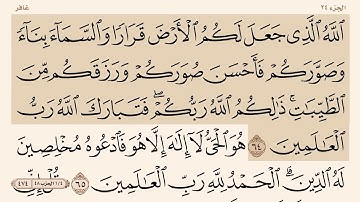 غافر
الجزء ٢٤
ٱللَّهُ ٱلَّذِى جَعَلَ لَكُمُ ٱلْأَرْضَ قَرَارًا وَٱلسَّمَآءَ بِنَآءً
وَصَوَّرَكُمْ فَأَحْسَنَ صُوَرَكُمْ وَرَزَقَكُم مِّنَ
ٱلطَّيِّبَٰتِ ۚ ذَٰلِكُمُ ٱللَّهُ رَبُّكُمْ ۖ فَتَبَارَكَ ٱللَّهُ رَبُّ
ٱلْعَٰلَمِينَ ٦٤ هُوَ ٱلْحَىُّ لَآ إِلَٰهَ إِلَّا هُوَ فَٱدْعُوهُ مُخْلِصِينَ
لَهُ ٱلدِّينَ ۗ ٱلْحَمْدُ لِلَّهِ رَبِّ ٱلْعَٰلَمِينَ ٦٥ قُلْ إِنِّى
١/٤ الحزب ٤٨ ٤٧٤